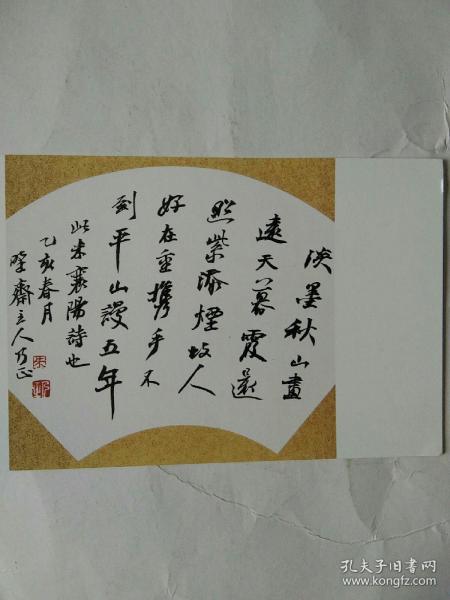 淡墨秋山畫
遠天暮霞還
照紫添煙故人
好在重攜手不
到平山謾五年
此米襄陽詩也
乙亥春月
齋主人乃正
朱
孔夫子旧书网
www.kongfz.com